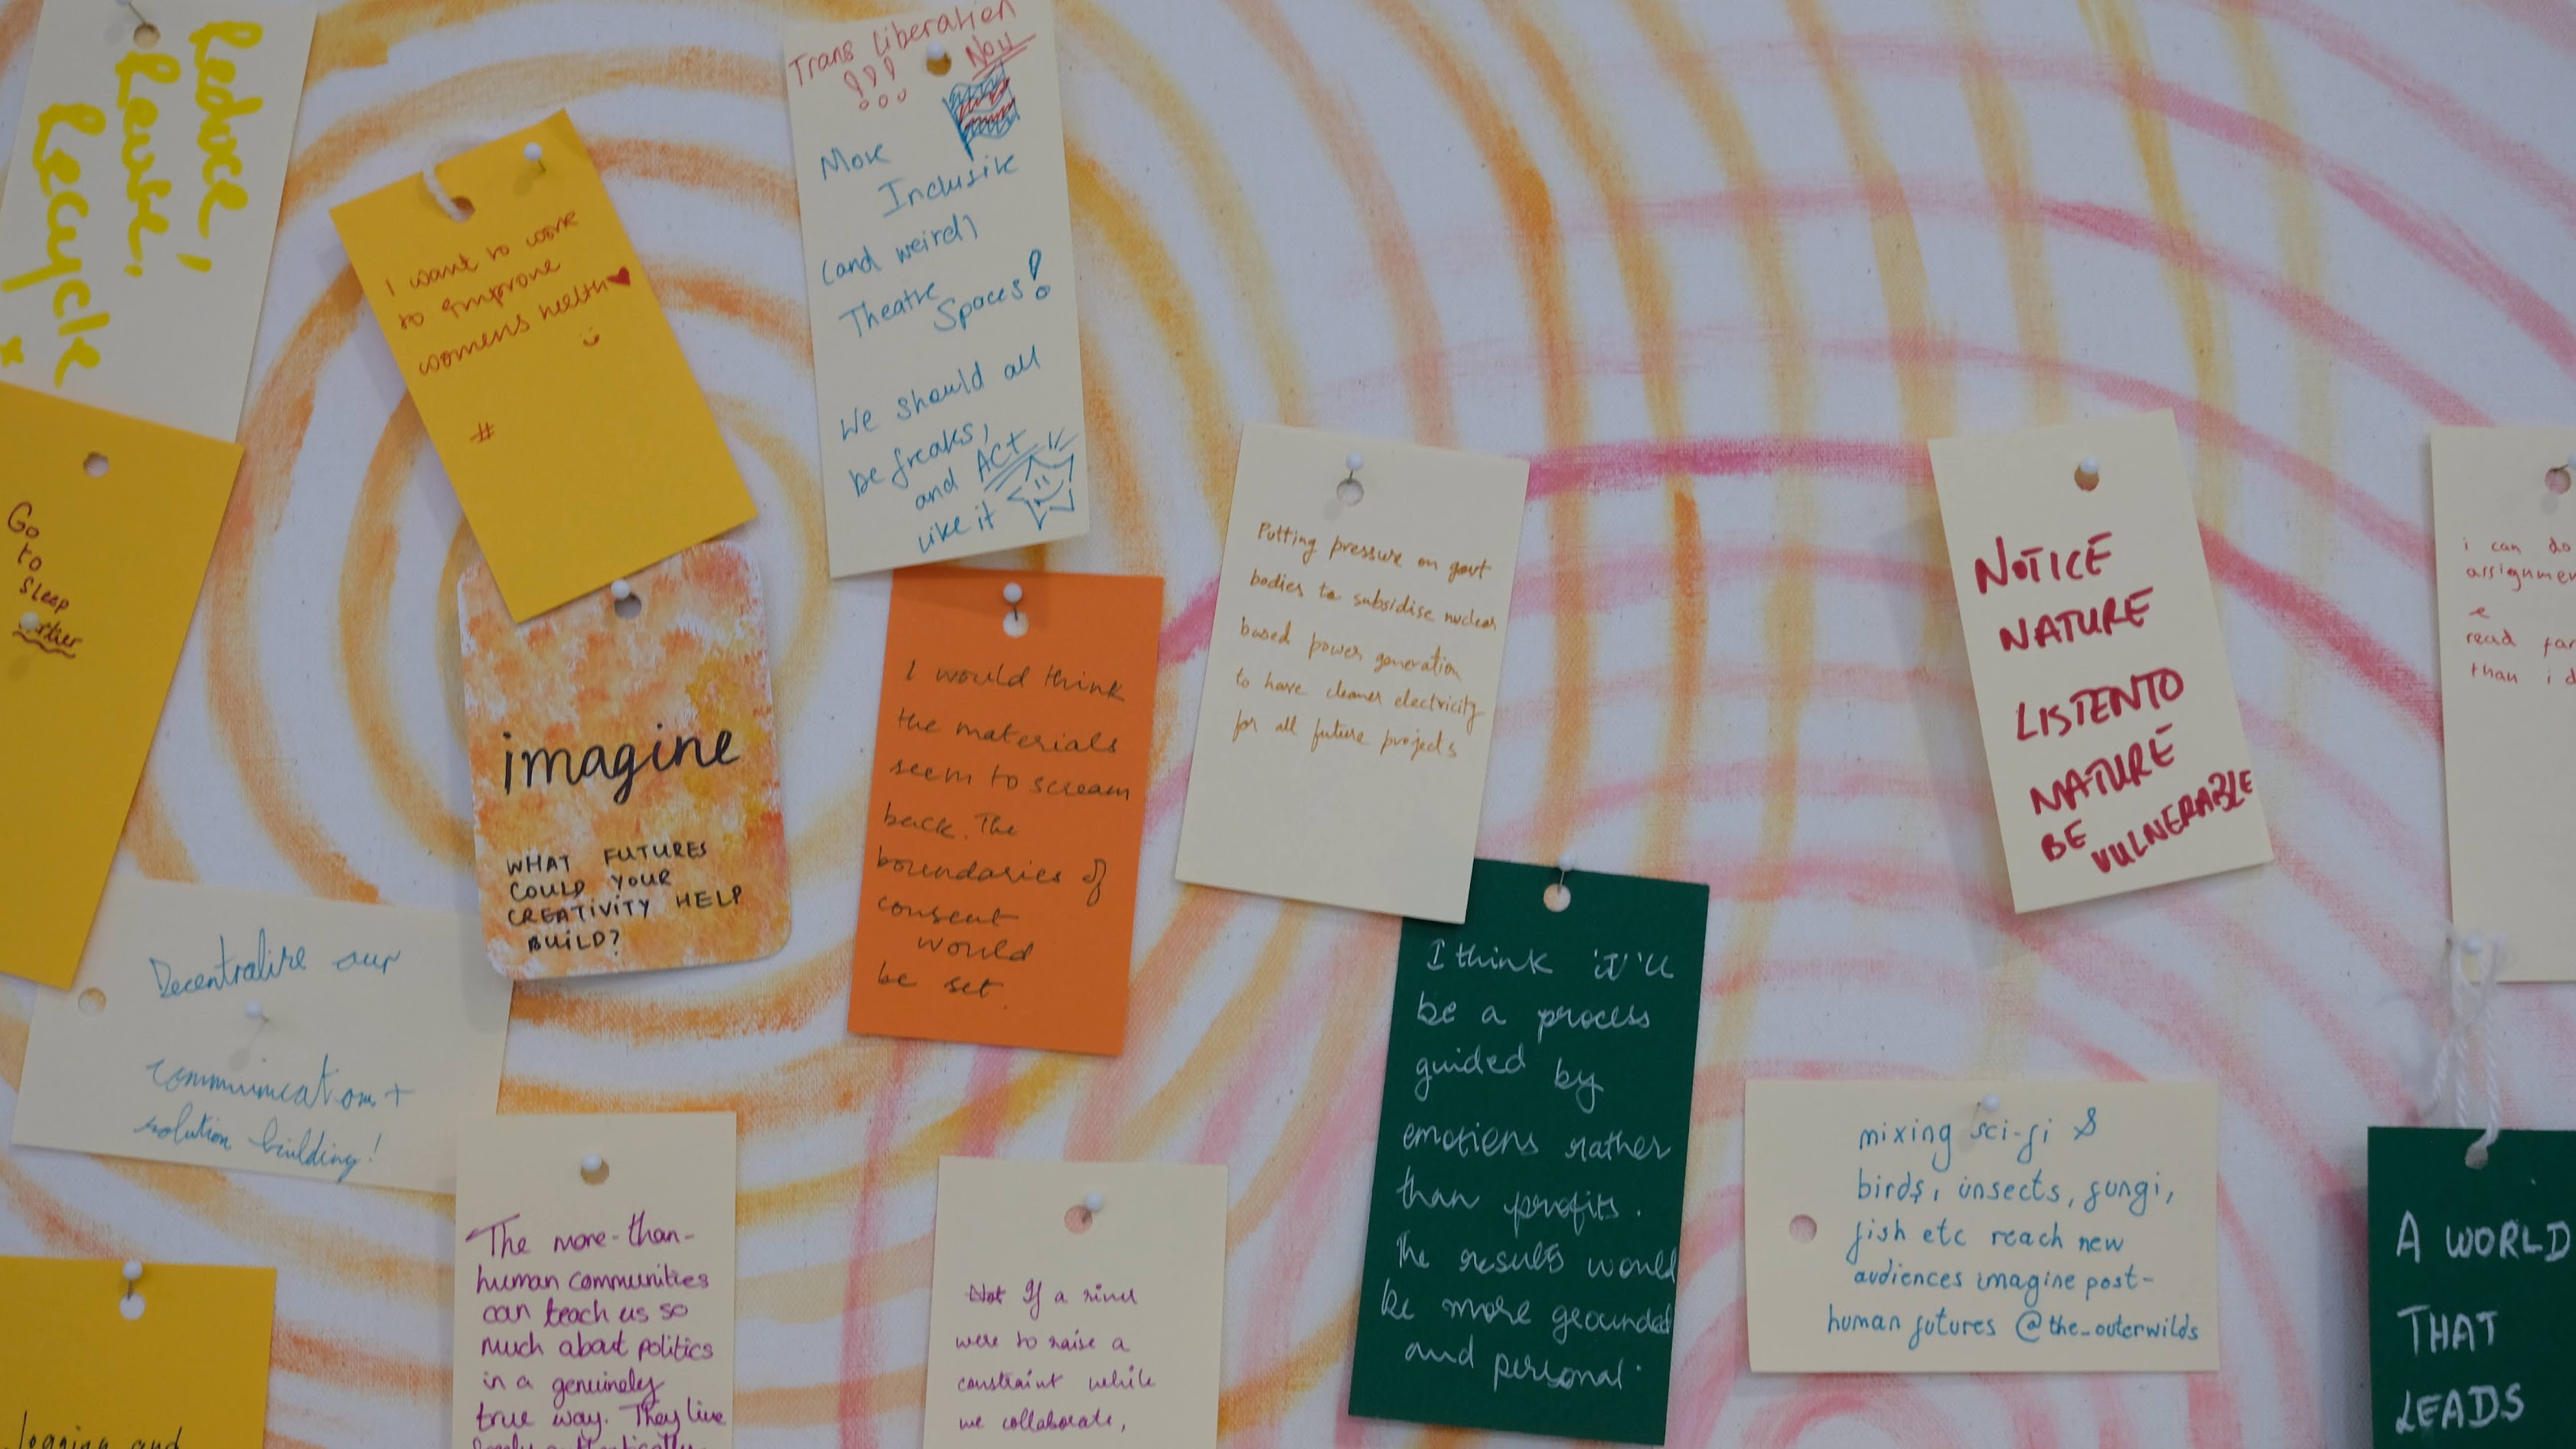 Reduce,
Reuse,
Recycle
x
I want to work
to improve
womens health
#
Trans Liberation
Now
!!!
More
Inclusive
(and weird)
Theatre
Spaces!
We should all
be freaks,
and ACT
like it
Go
to
sleep
imagine
WHAT FUTURES
COULD YOUR
CREATIVITY HELP
BUILD?
I would think
the materials
seem to scream
back. The
boundaries of
consent
would
be set.
Putting pressure on govt
bodies to subsidise nuclear
based power generation
to have cleaner electricity
for all future projects
NOTICE
NATURE
LISTEN TO
NATURE
BE
VULNERABLE
i can do
read
than i
Decentralise our
communication +
solution building!
I think it'll
be a process
guided by
emotions rather
than profits.
The results would
be more grounded
and personal.
mixing sci-fi &
birds, insects, fungi,
fish etc reach new
audiences imagine post-
human futures @the_outerwilds
A WORLD
THAT
LEADS
The more-than-
human communities
can teach us so
much about politics
in a genuinely
true way. They live
Not If a river
were to raise a
constraint while
we collaborate,
and